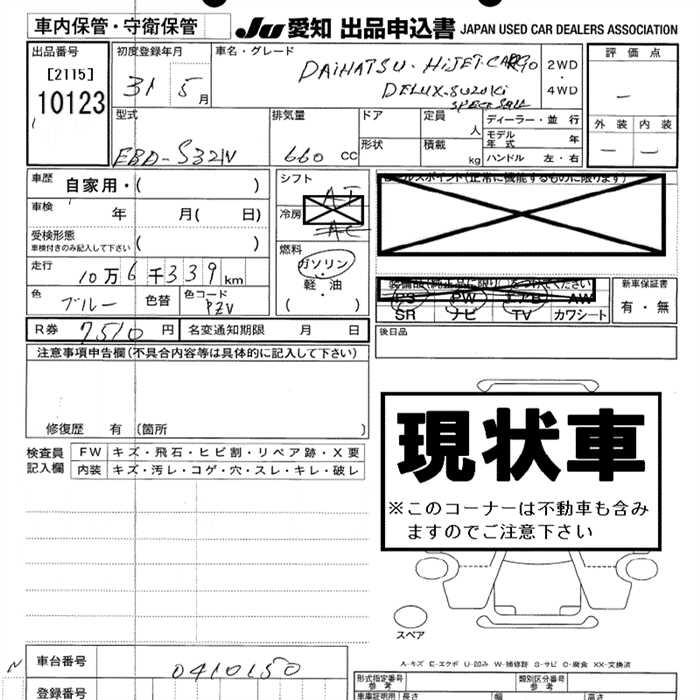 車内保管・守衛保管
JU 愛知 出品申込書 JAPAN USED CAR DEALERS ASSOCIATION
出品番号
[2115]
10123
初度登録年月
31 5月
車名・グレード
DAIHATSU・HIJET・CARGO
DELUX・SUZUKI
2WD
・
4WD
評価点
外装 内装
型式
EBD-S321V
排気量
660 cc
ドア
形状
定員
人
積載
kg
ディーラー・並行
モデル年式 年
ハンドル 左・右
車歴 自家用・( )
車検 年 月( 日)
受検形態
車検付きのみ記入して下さい ( )
走行 10万6千339km
色 ブルー 色替
色コード
PZV
R券 7,510円
名変通知期限 月 日
シフト
冷房
AC
燃料
ガソリン
・
軽・油
( )
セールスポイント(正常に機能するものに限ります)
装備品(純正品に限り○をつけてください
PS PW エアB AW
SR ナビ TV カワシート
新車保証書
有・無
後日品
注意事項申告欄(不具合内容等は具体的に記入して下さい)
修復歴 有 (箇所
検査員
記入欄
FW キズ・飛石・ヒビ割・リペア跡・X要
内装 キズ・汚レ・コゲ・穴・スレ・キレ・破レ
現状車
※このコーナーは不動車も含み
ますのでご注意下さい
スペア
A-キズ E-エクボ U-凹み W-補修跡 S-サビ C-腐食 XX-交換済
車台番号 0410150
登録番号
形式指定番号
参考
類別区分番号
参考
車証証明用 長さ 幅 高さ